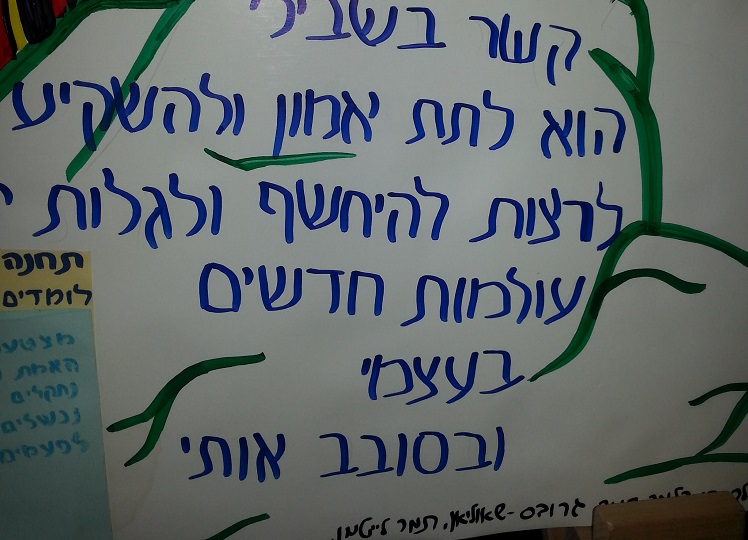 קשר בשבילי
הוא לתת אמון ולהשקיע
לרצות להיחשף ולגלות
עולמות חדשים
בעצמי
ובסובב אותי
תחנה
לומדים
האמת
נתקלים
נכשלים
לפעמים
גרובס-שאוליאן, תמר לייטמן.